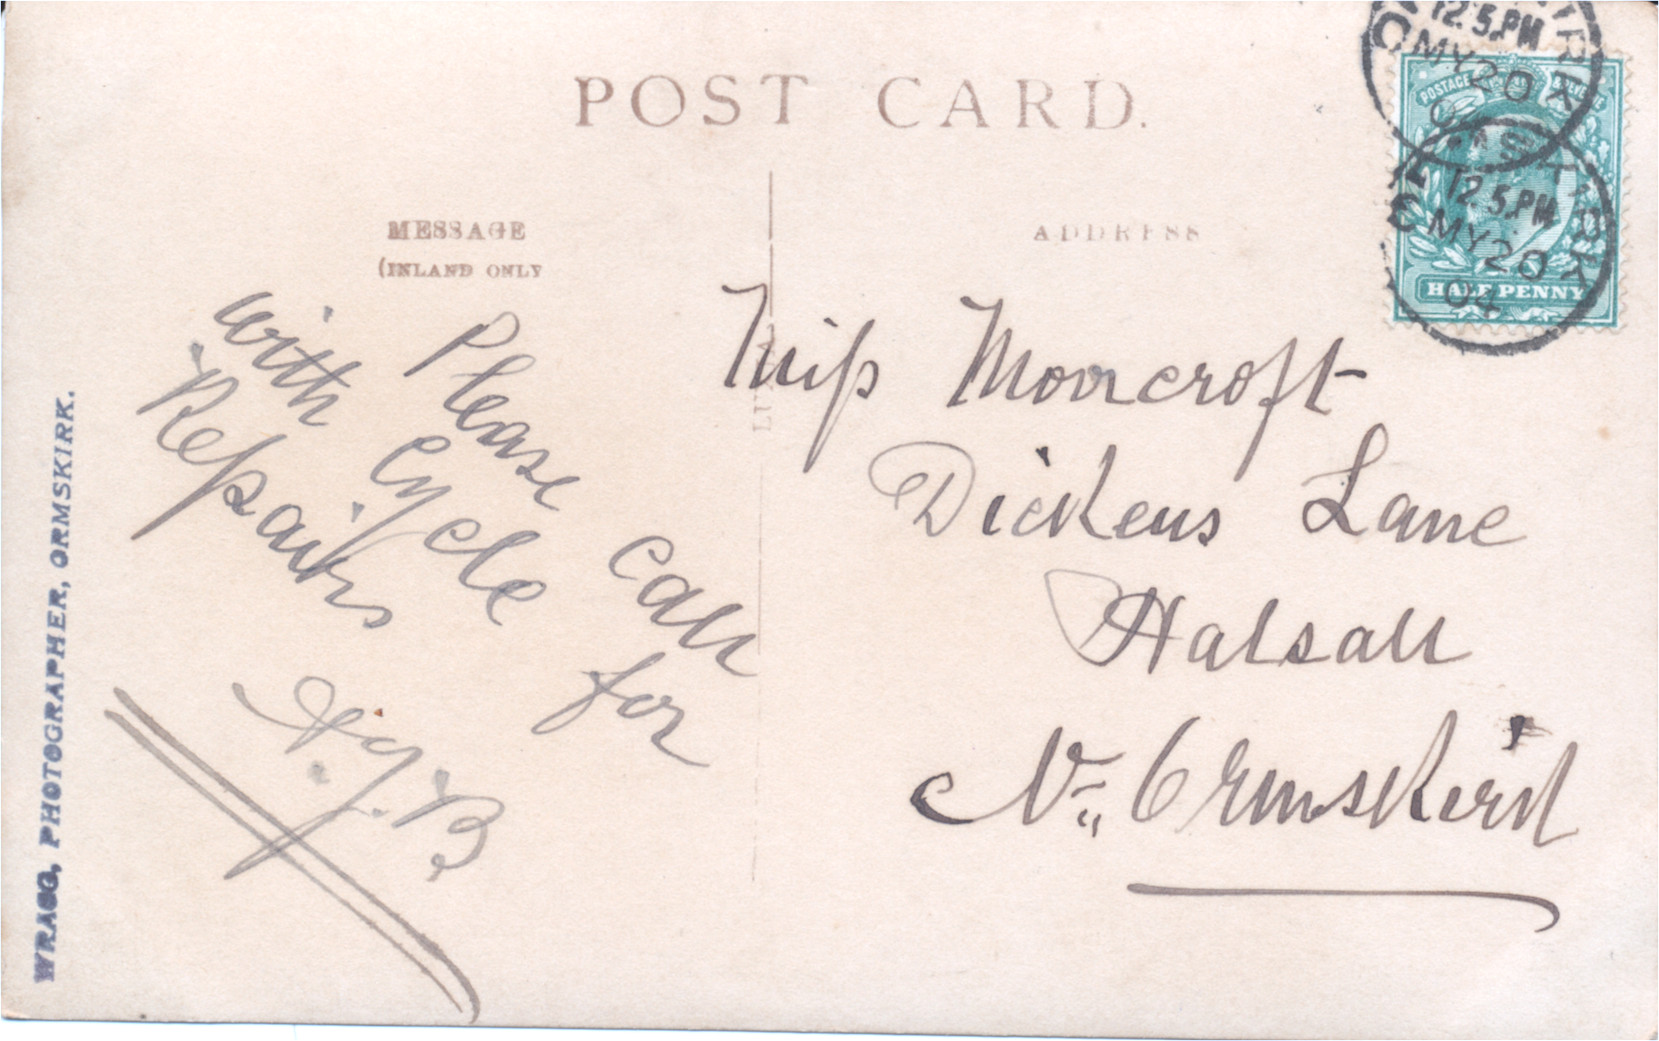 POST CARD.
MESSAGE
(INLAND ONLY
ADDRESS
Please call
with Cycle for
Repairs
A.J.B.
Miss Moorcroft
Dickens Lane
Halsall
Nr. Ormskirk
WRAGG, PHOTOGRAPHER, ORMSKIRK.
POSTAGE REVENUE
HALF PENNY
ORMSKIRK
12.5.PM
MY 20
04
ORMSKIRK
12.5.PM
MY 20
04